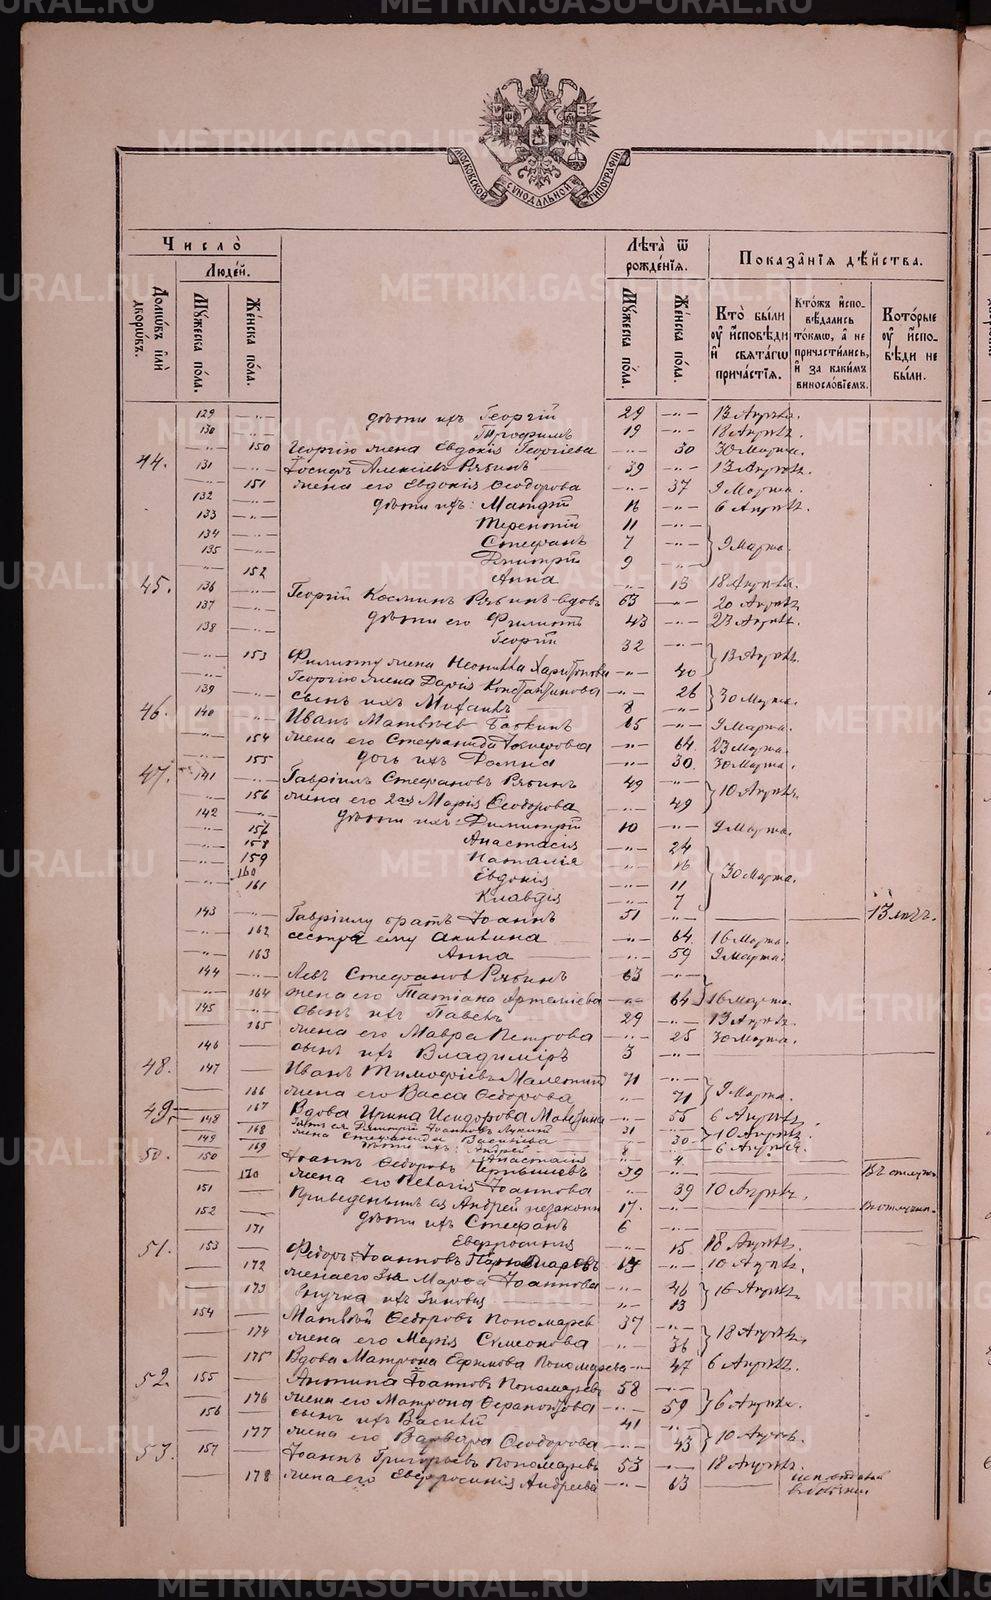 МОСКОВСКОЙ СѴНОДАЛЬНОЙ ТИПОГРАФІИ
Число̀
Людей.
Домѡвъ и҆лѝ дворѡвъ.
Мꙋжеска по́ла.
Же́нска по́ла.
Лѣта̀ ѿ рожде́нїѧ.
Мꙋжеска по́ла.
Же́нска по́ла.
Показа̑нїѧ дѣ́йства.
Кто̀ бы́ли ᲂу҆ и҆сповѣди и҆ свѧта́гѡ причастїѧ.
Кто́жъ и҆спо- вѣдались то́кмѡ, а҆ не причасти́лись, и҆ за каки́мъ винословїемъ.
Кото́рые ᲂу҆ и҆спо- вѣди не бы́ли.
129 дѣти ихъ Георгій 29 13 Апрѣля.
130 Трофимъ 19 18 Апрѣля.
150 Георгію жена Евдокія Георгіева 30 30 Марта.
44. 131 Іосифъ Алексѣевъ Рябинъ 39 13 Апрѣля
151 жена его Евдокія Ѳеодорова 37 9 Марта.
132 дѣти ихъ: Матфій 16 6 Апрѣля.
133 Терентій 11
134 Стефанъ 7 9 Марта.
135 Димитрій 9
152 Анна 13 18 Апрѣля.
45. 136 Георгій Косминъ Рябинъ вдовъ 63 20 Апрѣля
137 дѣти его Филиппъ 43 23 Апрѣля.
138 Георгій 32
153 Филиппу жена Неонилла Харитонова 40 13 Апрѣля.
Георгію жена Дарія Константинова 26
139 сынъ ихъ Михаилъ 8 30 Марта.
46. 140 Иванъ Матвѣевъ 65 9 Марта.
154 жена его Стефанида Іосифова 64. 23 Марта.
155 дочь ихъ Домна 30. 30 Марта.
47. 141 Гавріилъ Стефановъ Рябинъ 49
156 жена его 2ая Марія Ѳеодорова 49 10 Апрѣля.
142 дѣти ихъ: Димитрій 10 9 Марта.
157 Анастасія 24
158 Наталія 16
159 Евдокія 11 30 Марта.
160
161 Клавдія 7
143 Гавріилу братъ Іоаннъ 51 13 лѣтъ.
162 сестра ему Акилина 64. 16 Марта.
163 Анна 59 9 Марта.
144 Левъ Стефановъ Рябинъ 63
164 жена его Татіана Артеміева 64 16 Марта.
145 сынъ ихъ Павелъ 29 13 Апрѣля.
165 жена его Мавра Петрова 25 30 Марта.
146 сынъ ихъ Владиміръ 3
48. 147 Иванъ Тимофіевъ 71
166 жена его Васса Ѳедорова 71 9 Марта.
49. 167 Вдова Ирина Исидорова 55 6 Апрѣля.
148 Зять ея Димитрій Іоанновъ 31
168 жена Стефанида 30 10 Апрѣля.
149 дѣти ихъ: Андрей 8 6 Апрѣля
169 Анастасія 4
50. 150 Іоаннъ Ѳедоровъ Чернышевъ 39
170 жена его Пелагія Іоаннова 39 10 Апрѣля.
151 Андрей 17.
152 дѣти ихъ Стефанъ 6
171 Евфросинія 15 18 Апрѣля.
51. 153 Федоръ Іоанновъ 10 Апрѣля.
172 жена его 3я Марфа Іоаннова 46 16 Апрѣля.
173 внучка ихъ Зиновія 13
154 Матвѣй Ѳедоровъ Пономаревъ 37
174 жена его Марія Сѵмеонова 36 18 Апрѣля
175 Вдова Матрона Ефимова Пономарева 47 6 Апрѣля.
52. 155 Антипа Іоанновъ Пономаревъ 58
176 жена его Матрона Ѳерапонтова 59 6 Апрѣля.
156 сынъ ихъ Василій 41
177 жена его Варвара Ѳеодорова 43 10 Апрѣля.
53. 157 Іоаннъ Григорьевъ Пономаревъ 53 18 Апрѣля.
178 жена его Евфросинія Андреева 63
METRIKI.GASO-URAL.RU